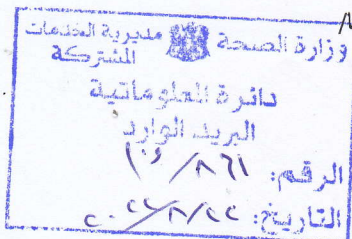 وزارة الصحة مديرية الخدمات
المشتركة
دائرة المعلوماتية
البريد الوارد
الرقم: ١٠٦/٨٦١
التاريخ: ٢٠٢٢/٨/٢٢